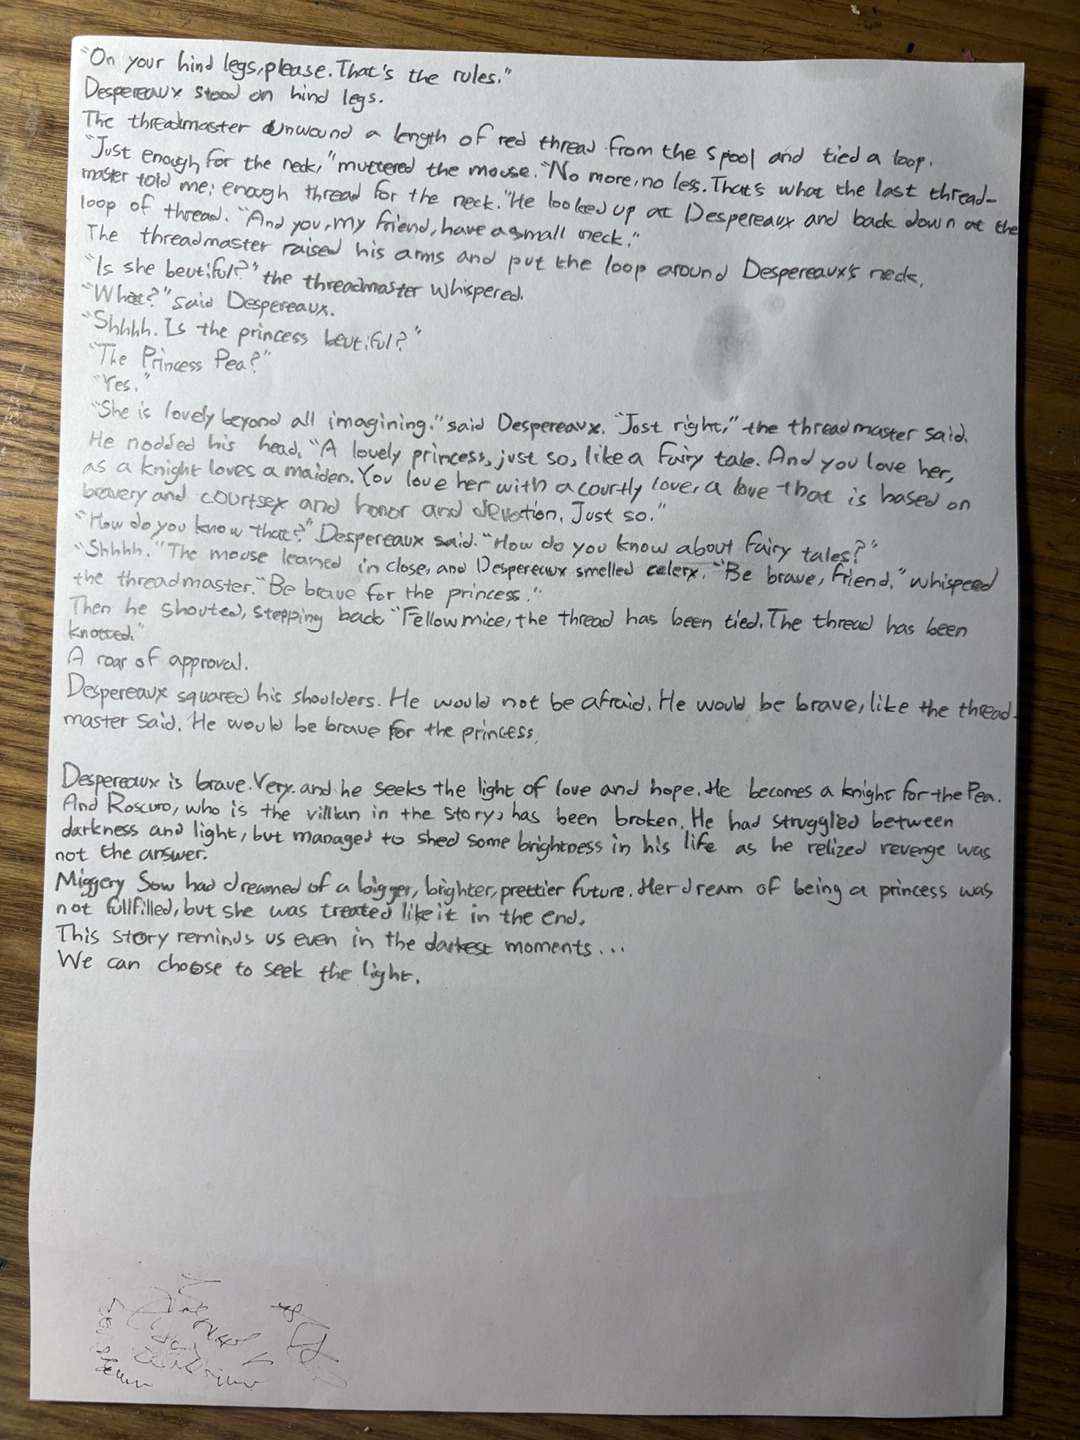 "On your hind legs, please. That's the rules."
Despereaux stood on hind legs.
The threadmaster unwound a length of red thread from the spool and tied a loop.
"Just enough for the neck," muttered the mouse. "No more, no less. That's what the last thread-
master told me: enough thread for the neck." He looked up at Despereaux and back down at the
loop of thread. "And you, my friend, have a small neck."
The threadmaster raised his arms and put the loop around Despereaux's neck.
"Is she beutiful?" the threadmaster whispered.
"What?" said Despereaux.
"Shhhh. Is the princess beutiful?"
"The Princess Pea?"
"Yes."
"She is lovely beyond all imagining." said Despereaux. "Just right," the threadmaster said.
He nodded his head. "A lovely princess, just so, like a fairy tale. And you love her,
as a knight loves a maiden. You love her with a courtly love, a love that is based on
bravery and courtsey and honor and devotion. Just so."
"How do you know that?" Despereaux said. "How do you know about fairy tales?"
"Shhhh." The mouse leaned in close, and Despereaux smelled celery. "Be brave, friend." whispered
the threadmaster. "Be brave for the princess."
Then he shouted, stepping back "Fellow mice, the thread has been tied. The thread has been
knotted."
A roar of approval.
Despereaux squared his shoulders. He would not be afraid. He would be brave, like the thread-
master said. He would be brave for the princess.
Despereaux is brave. Very. and he seeks the light of love and hope. He becomes a knight for the Pea.
And Roscuro, who is the villian in the story, has been broken. He had struggled between
darkness and light, but managed to shed some brightness in his life as he relized revenge was
not the answer.
Miggery Sow had dreamed of a bigger, brighter, prettier future. Her dream of being a princess was
not fullfilled, but she was treated like it in the end.
This story reminds us even in the darkest moments...
We can choose to seek the light.